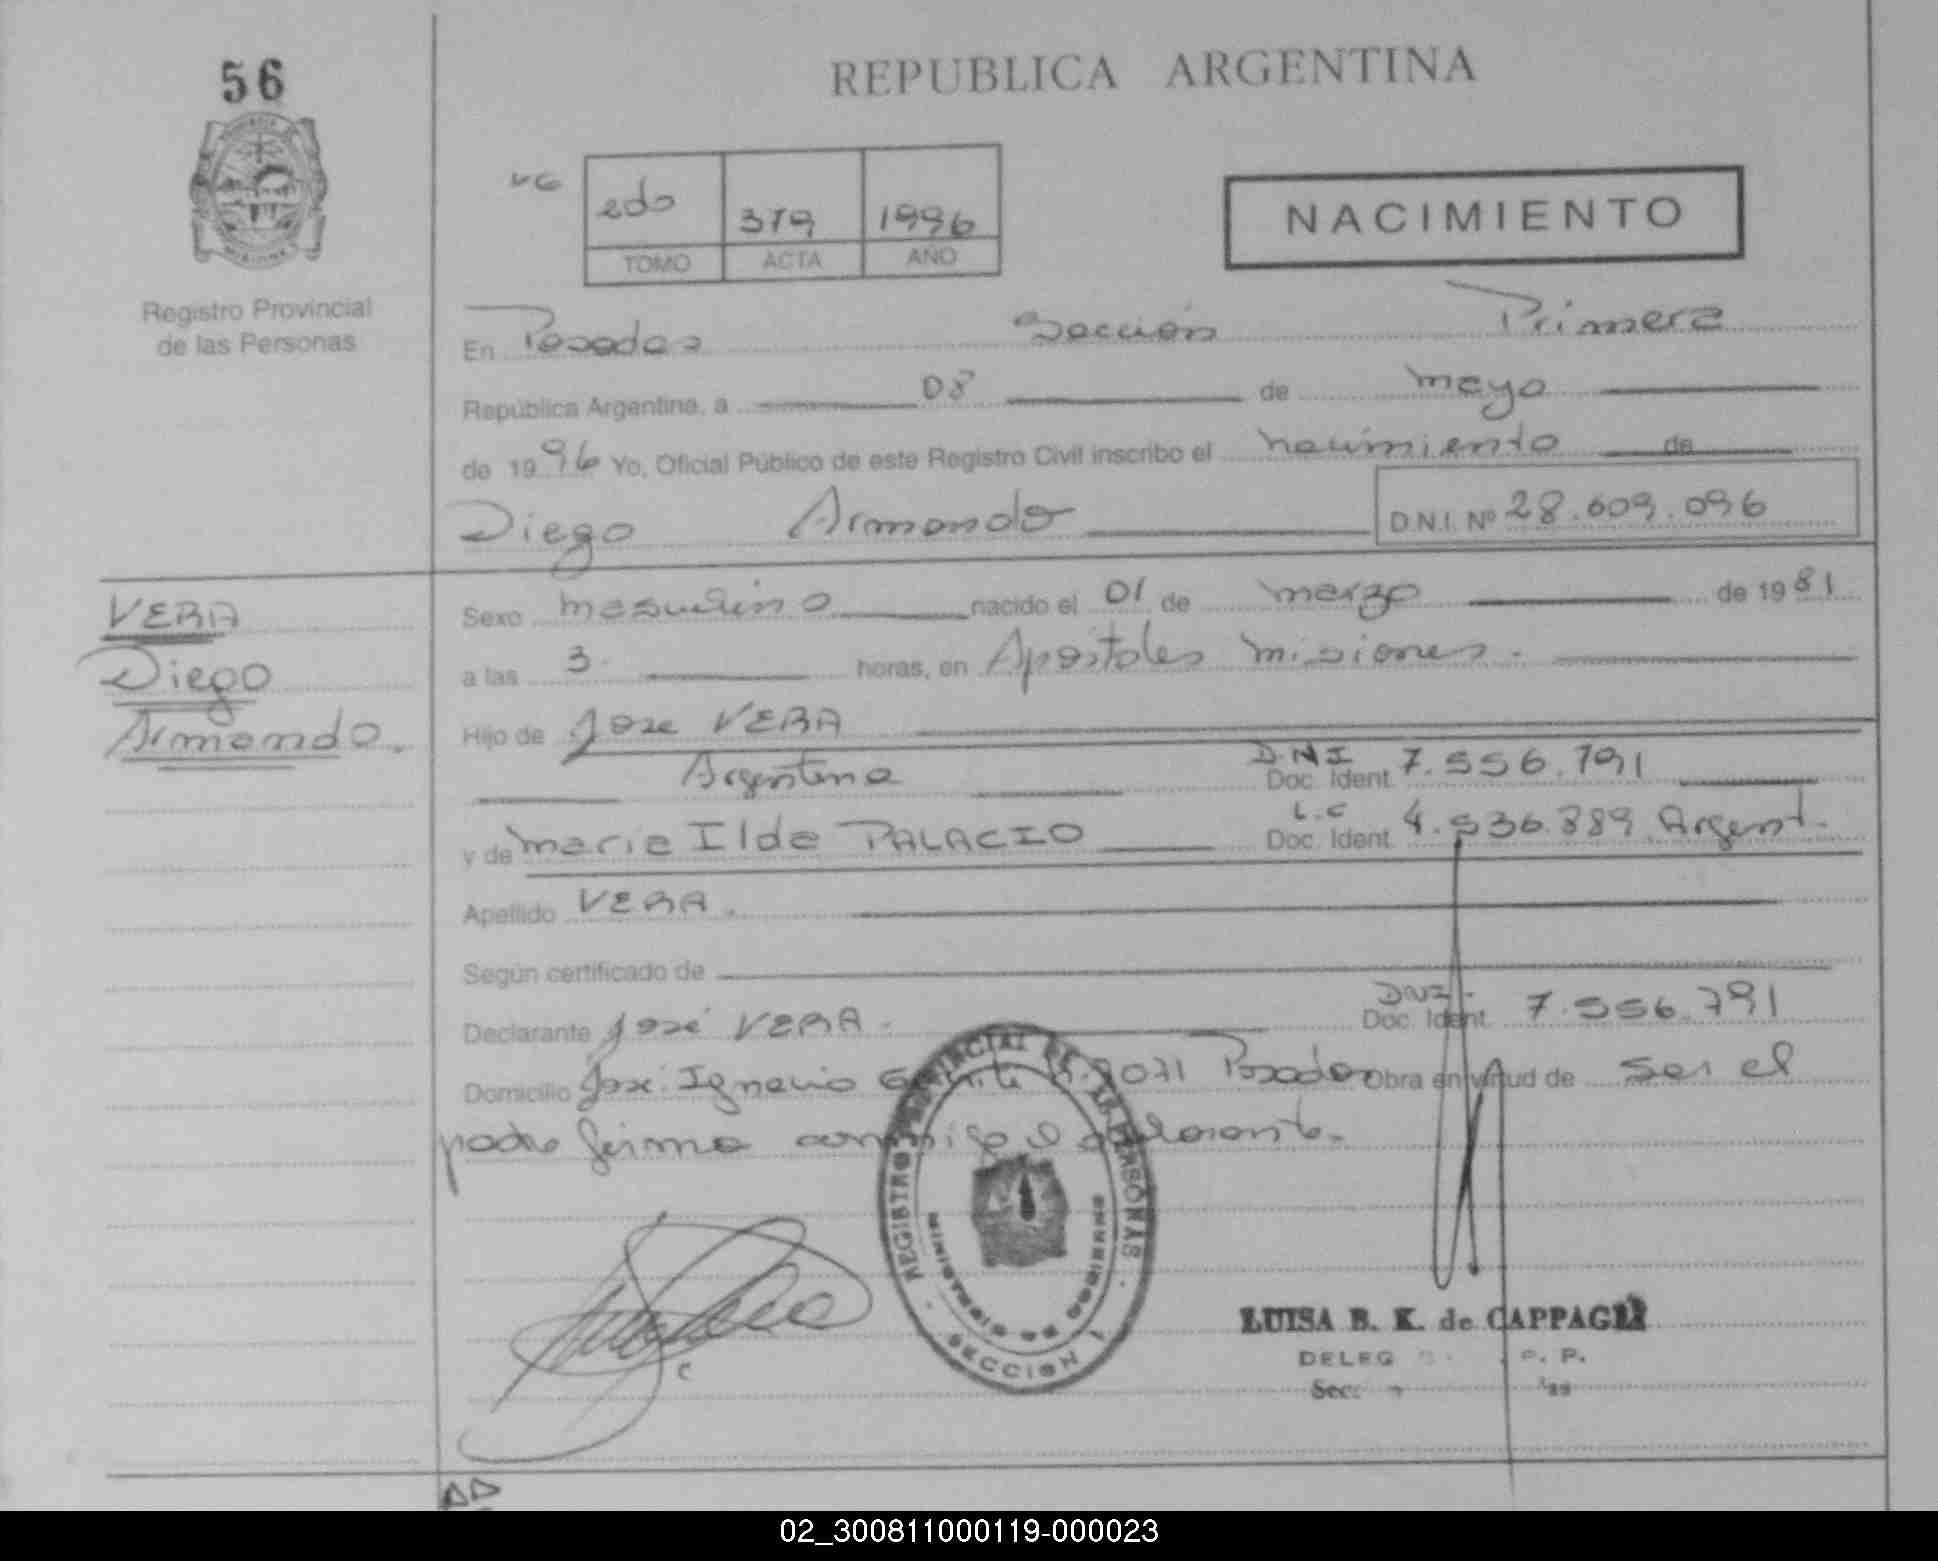 56
REPUBLICA ARGENTINA
edo 379 1996
TOMO ACTA AÑO
NACIMIENTO
Registro Provincial
de las Personas
En Posadas Sección Primera
República Argentina, a 08 de mayo
de 1996 Yo, Oficial Público de este Registro Civil inscribo el nacimiento de
Diego Armando D.N.I. Nº 28.609.096
VERA
Diego
Armando.
Sexo masculino nacido el 01 de marzo de 1981
a las 3. horas, en Apostoles misiones.
Hijo de Jose VERA
Argentina D.N.I Doc. Ident. 7.556.791
y de Maria Ilda PALACIO L.C Doc. Ident. 4.536.889 Argent.
Apellido VERA.
Según certificado de
Declarante José VERA. DNI Doc. Ident. 7.556.791
Domicilio José Ignacio 2071 Posadas Obra en virtud de ser el
padre firma conmigo el
REGISTRO PROVINCIAL DE LAS PERSONAS
MINISTERIO DE GOBIERNO
SECCION 1
LUISA B. K. de
DELEG P. P.
Secc
02_300811000119-000023